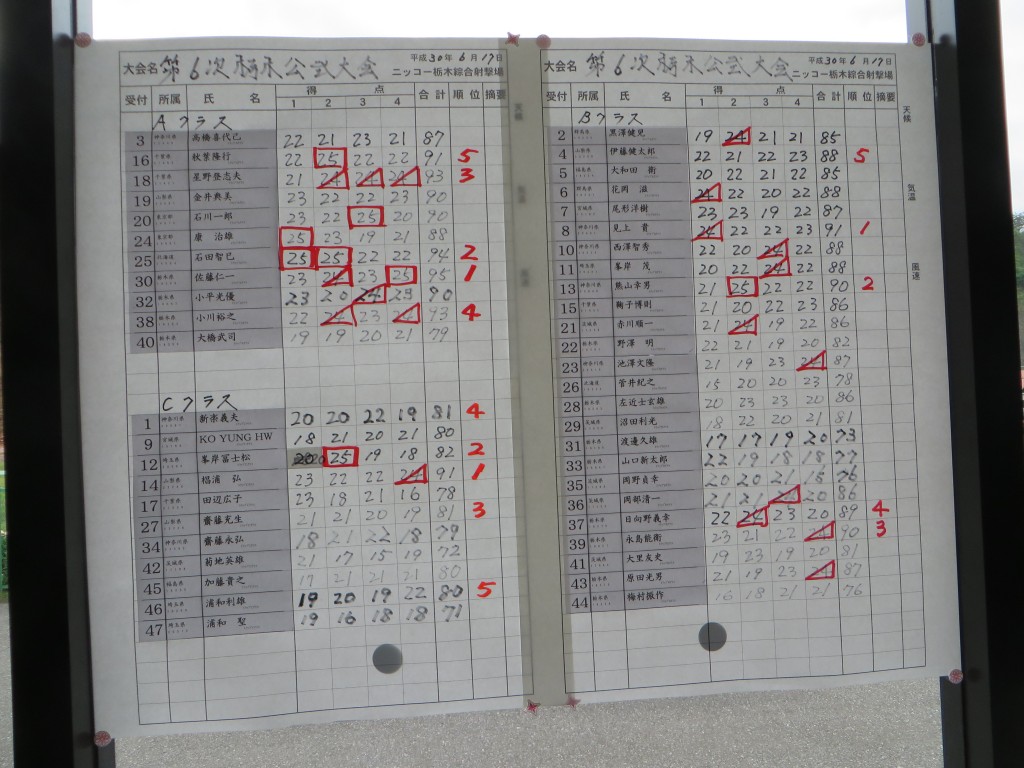 大会名 第6次栃木公式大会 平成30年6月17日
ニッコー栃木綜合射撃場
受付 所属 氏 名 得 点 合計 順位 摘要
1 2 3 4
Aクラス
3 神奈川県 高橋喜代巳 22 21 23 21 87
16 千葉県 秋葉隆行 22 25 22 22 91 5
18 千葉県 星野登志夫 21 24 24 24 93 3
19 山梨県 金井典美 23 22 22 23 90
20 東京都 石川一郎 23 22 25 20 90
24 東京都 康 治雄 25 23 19 21 88
25 北海道 石田智巳 25 25 22 22 94 2
30 栃木県 佐藤仁一 23 24 23 25 95 1
32 栃木県 小平光優 23 20 24 23 90
38 栃木県 小川裕之 22 24 23 24 93 4
40 栃木県 大橋武司 19 19 20 21 79
Cクラス
1 神奈川県 新楽義夫 20 20 22 19 81 4
9 宮城県 KO YUNG HW 18 21 20 21 80
12 埼玉県 峯岸冨士松 20 25 19 18 82 2
14 山梨県 椙浦 弘 23 22 22 24 91 1
17 千葉県 田辺広子 23 18 21 16 78
27 山梨県 齋藤充生 21 21 20 19 81 3
34 神奈川県 齋藤永弘 18 21 22 18 79
42 茨城県 菊地英雄 21 17 15 19 72
45 福島県 加藤貴之 17 21 21 21 80
46 埼玉県 浦和利雄 19 20 19 22 80 5
47 埼玉県 浦和 聖 19 16 18 18 71
大会名 第6次栃木公式大会 平成30年6月17日
ニッコー栃木綜合射撃場
受付 所属 氏 名 得 点 合計 順位 摘要
1 2 3 4
Bクラス
2 群馬県 黒澤健児 19 24 21 21 85
4 山形県 伊藤健太郎 22 21 22 23 88 5
5 福島県 大和田 衛 20 22 21 22 85
6 群馬県 花岡 滋 24 22 20 22 88
7 宮城県 尾形洋樹 23 23 19 22 87
8 神奈川県 見上 貴 24 22 22 23 91 1
10 神奈川県 西澤智秀 22 20 24 22 88
11 埼玉県 峯岸 茂 20 22 24 22 88
13 神奈川県 熊山幸男 21 25 22 22 90 2
15 千葉県 鞠子博則 21 20 22 23 86
21 茨城県 赤川順一 21 24 19 22 86
22 栃木県 野澤 明 22 21 19 20 82
23 神奈川県 池澤文隆 21 19 23 24 87
26 北海道 菅井紀之 15 20 20 23 78
28 栃木県 左近士玄雄 20 23 23 20 86
29 茨城県 沼田利光 18 22 20 21 81
31 栃木県 渡邊久雄 17 17 19 20 73
33 栃木県 山口新太郎 22 19 18 18 77
35 茨城県 岡野貞幸 20 20 21 15 76
36 茨城県 岡部清一 21 21 24 20 86
37 栃木県 日向野義幸 22 24 23 20 89 4
39 栃木県 永島能衛 23 21 22 24 90 3
41 茨城県 大里友史 19 23 19 20 81
43 栃木県 原田光男 21 19 23 24 87
44 栃木県 梅村振作 16 18 21 21 76
天候
気温
風速